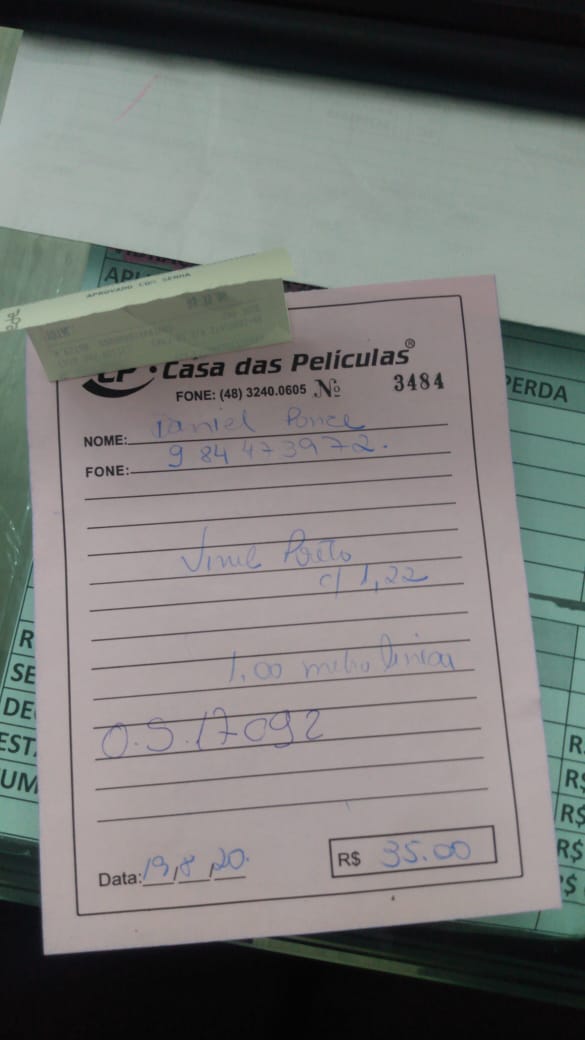 APROVADO COM SENHA
CP • Casa das Películas®
FONE: (48) 3240.0605 Nº 3484
NOME: Daniel Ponce
FONE: 9 84473972.
Vinil Preto
c/ 1,22
1,00 metro linear
O.S. 17092
Data: 19/8/20.
R$ 35.00
PERDA
R$
R$
R$